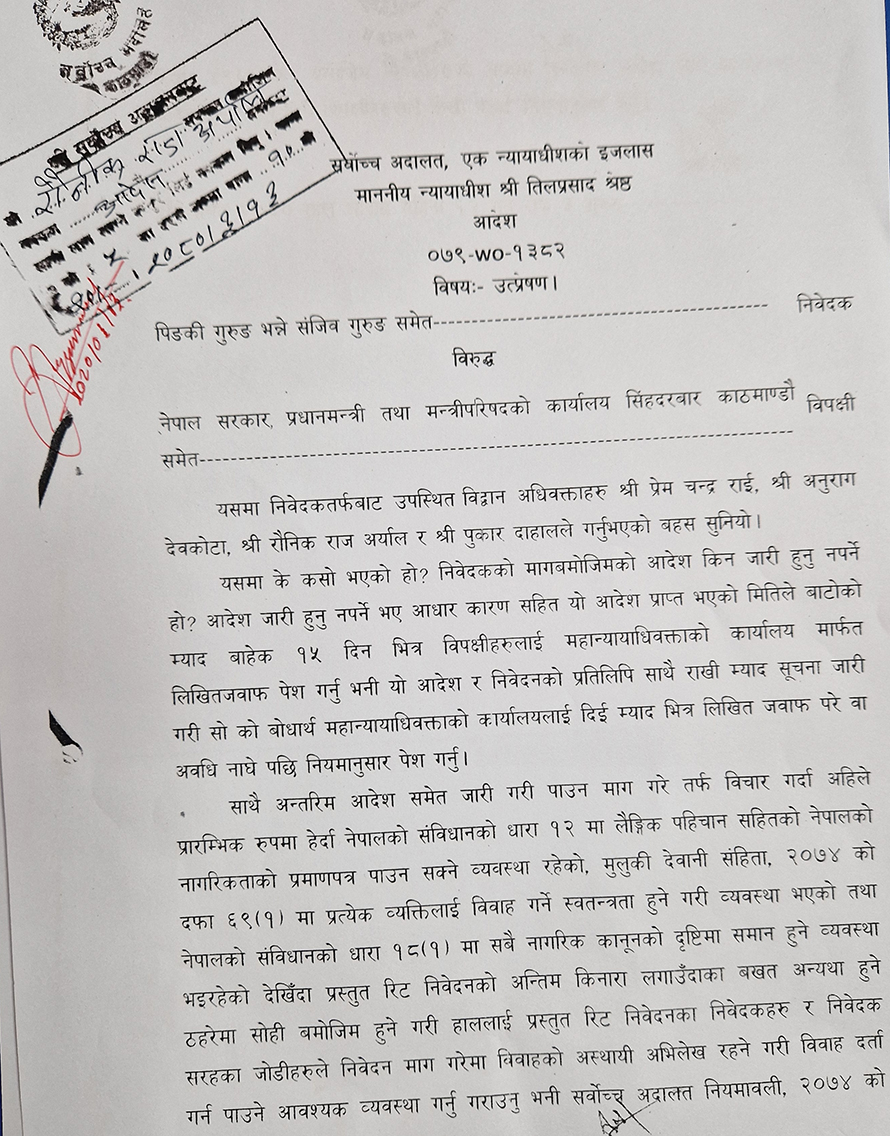 सर्वोच्च अदालत
काठमाडौं
सर्वोच्च अदालत, एक न्यायाधीशको इजलास
माननीय न्यायाधीश श्री तिलप्रसाद श्रेष्ठ
आदेश
०७९-WO-१३८२
विषयः- उत्प्रेषण।
पिङकी गुरुङ भन्ने संजिव गुरुङ समेत------------------------------------------ निवेदक
विरुद्ध
नेपाल सरकार, प्रधानमन्त्री तथा मन्त्रीपरिषदको कार्यालय सिंहदरवार काठमाण्डौ विपक्षी
समेत------------------------------------------------------------------------
यसमा निवेदकतर्फबाट उपस्थित विद्वान अधिवक्ताहरु श्री प्रेम चन्द्र राई, श्री अनुराग
देवकोटा, श्री रौनिक राज अर्याल र श्री पुकार दाहालले गर्नुभएको बहस सुनियो।
यसमा के कसो भएको हो? निवेदकको मागबमोजिमको आदेश किन जारी हुनु नपर्ने
हो? आदेश जारी हुनु नपर्ने भए आधार कारण सहित यो आदेश प्राप्त भएको मितिले बाटोको
म्याद बाहेक १५ दिन भित्र विपक्षीहरुलाई महान्यायाधिवक्ताको कार्यालय मार्फत
लिखितजवाफ पेश गर्नु भनी यो आदेश र निवेदनको प्रतिलिपि साथै राखी म्याद सूचना जारी
गरी सो को बोधार्थ महान्यायाधिवक्ताको कार्यालयलाई दिई म्याद भित्र लिखित जवाफ परे वा
अवधि नाघे पछि नियमानुसार पेश गर्नु।
साथै अन्तरिम आदेश समेत जारी गरी पाउन माग गरे तर्फ विचार गर्दा अहिले
प्रारम्भिक रुपमा हेर्दा नेपालको संविधानको धारा १२ मा लैङ्गिक पहिचान सहितको नेपालको
नागरिकताको प्रमाणपत्र पाउन सक्ने व्यवस्था रहेको, मुलुकी देवानी संहिता, २०७४ को
दफा ६९(१) मा प्रत्येक व्यक्तिलाई विवाह गर्ने स्वतन्त्रता हुने गरी व्यवस्था भएको तथा
नेपालको संविधानको धारा १८(१) मा सबै नागरिक कानूनको दृष्टिमा समान हुने व्यवस्था
भइरहेको देखिँदा प्रस्तुत रिट निवेदनको अन्तिम किनारा लगाउँदाका बखत अन्यथा हुने
ठहरेमा सोही बमोजिम हुने गरी हाललाई प्रस्तुत रिट निवेदनका निवेदकहरु र निवेदक
सरहका जोडीहरुले निवेदन माग गरेमा विवाहको अस्थायी अभिलेख रहने गरी विवाह दर्ता
गर्न पाउने आवश्यक व्यवस्था गर्नु गराउनु भनी सर्वोच्च अदालत नियमावली, २०७४ को